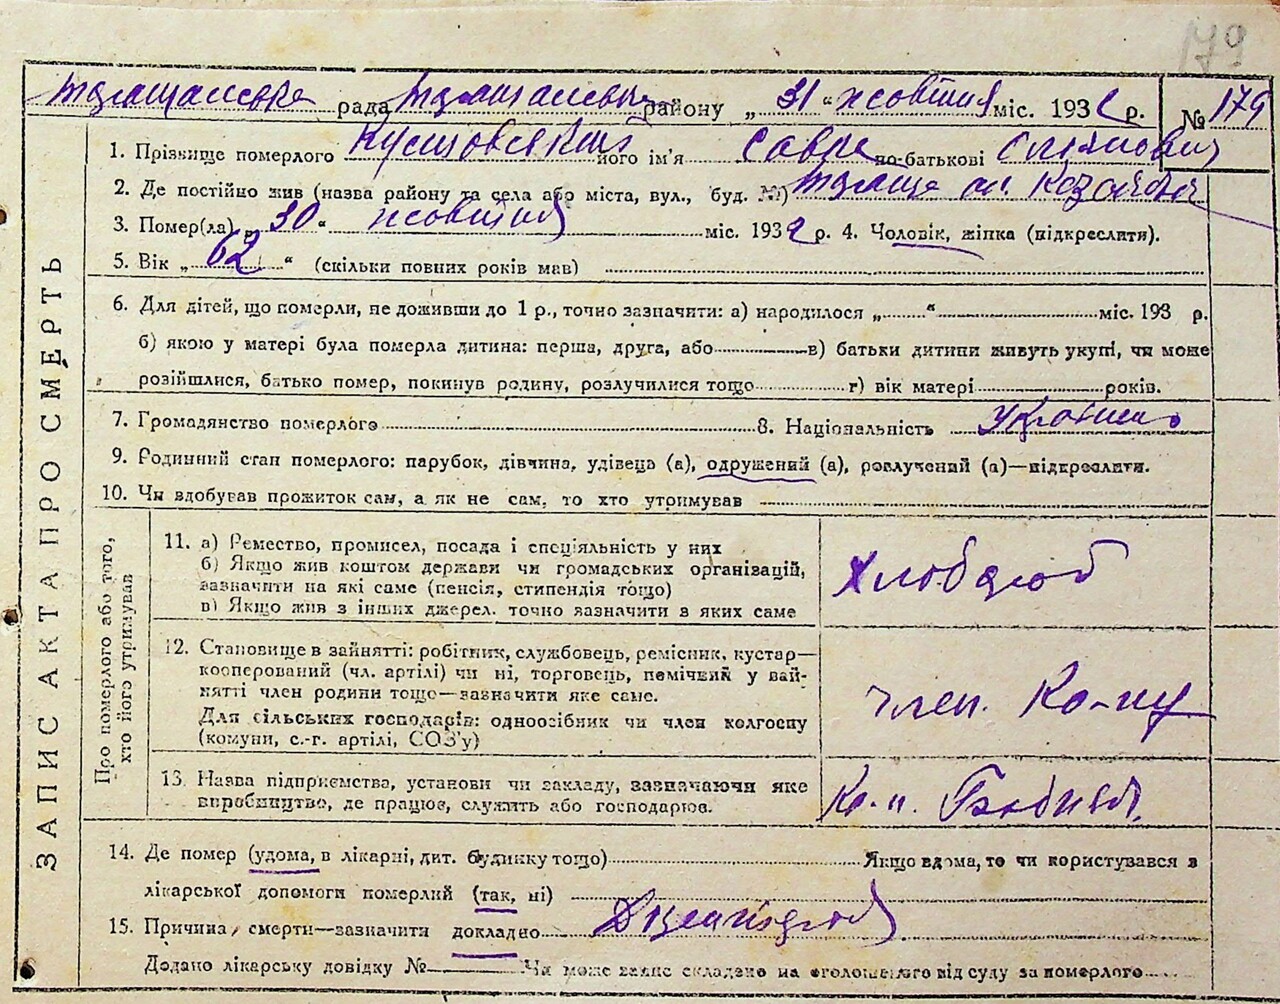 179
рада району „ 31 “ жовтня міс. 1932 р. № 179
1. Прізвище померлого його ім'я Сава по-батькові
2. Де постійно жив (назва району та села або міста, вул., буд. №)
3. Помер(ла) „ 30 “ жовтня міс. 1932 р. 4. Чоловік, жінка (підкреслити).
5. Вік „ 62 “ (скільки повних років мав)
6. Для дітей, що померли, не доживши до 1 р., точно зазначити: а) народилося „ “ міс. 193 р.
б) якою у матері була померла дитина: перша, друга, або в) батьки дитини живуть укупі, чи може
розійшлися, батько помер, покинув родину, розлучилися тощо г) вік матері років.
7. Громадянство померлого 8. Національність
9. Родинний стан померлого: парубок, дівчина, удівець (а), одружений (а), розлучений (а)—підкреслити.
10. Чи здобував прожиток сам, а як не сам, то хто утримував
ЗАПИС АКТА ПРО СМЕРТЬ
Про померлого або того,
хто його утримував
11. а) Ремество, промисел, посада і спеціяльність у них
б) Якщо жив коштом держави чи громадських організацій,
зазначити на які саме (пенсія, стипендія тощо)
в) Якщо жив з інших джерел, точно зазначити в яких саме
Хлібороб
12. Становище в зайнятті: робітник, службовець, ремісник, кустар—
кооперований (чл. артілі) чи ні, торговець, помічний у зай-
нятті член родини тощо—зазначити яке саме.
Для сільських господарів: одноосібник чи член колгоспу
(комуни, с.-г. артілі, СОЗ'у)
член.
13. Назва підприємства, установи чи закладу, зазначаючи яке
виробництво, де працює, служить або господарює.
14. Де помер (удома, в лікарні, дит. будинку тощо) Якщо вдома, то чи користувався з
лікарської допомоги померлий (так, ні)
15. Причина смерти—зазначити докладно
Додано лікарську довідку № Чи може запис складено на оголошеного від суду за померлого